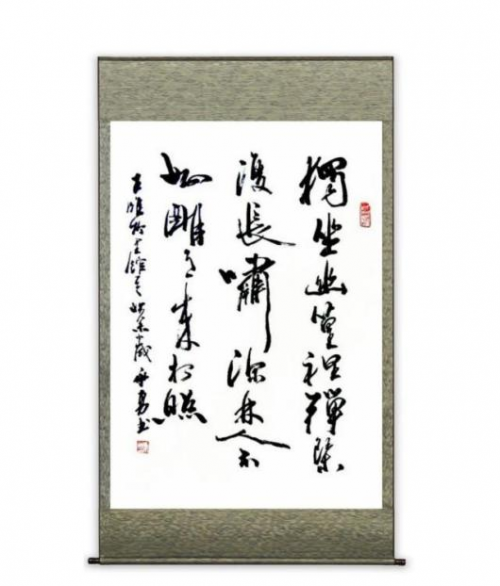 獨坐幽篁裡彈琴
復長嘯深林人不
知明月来相照
王維竹里館 歲 書